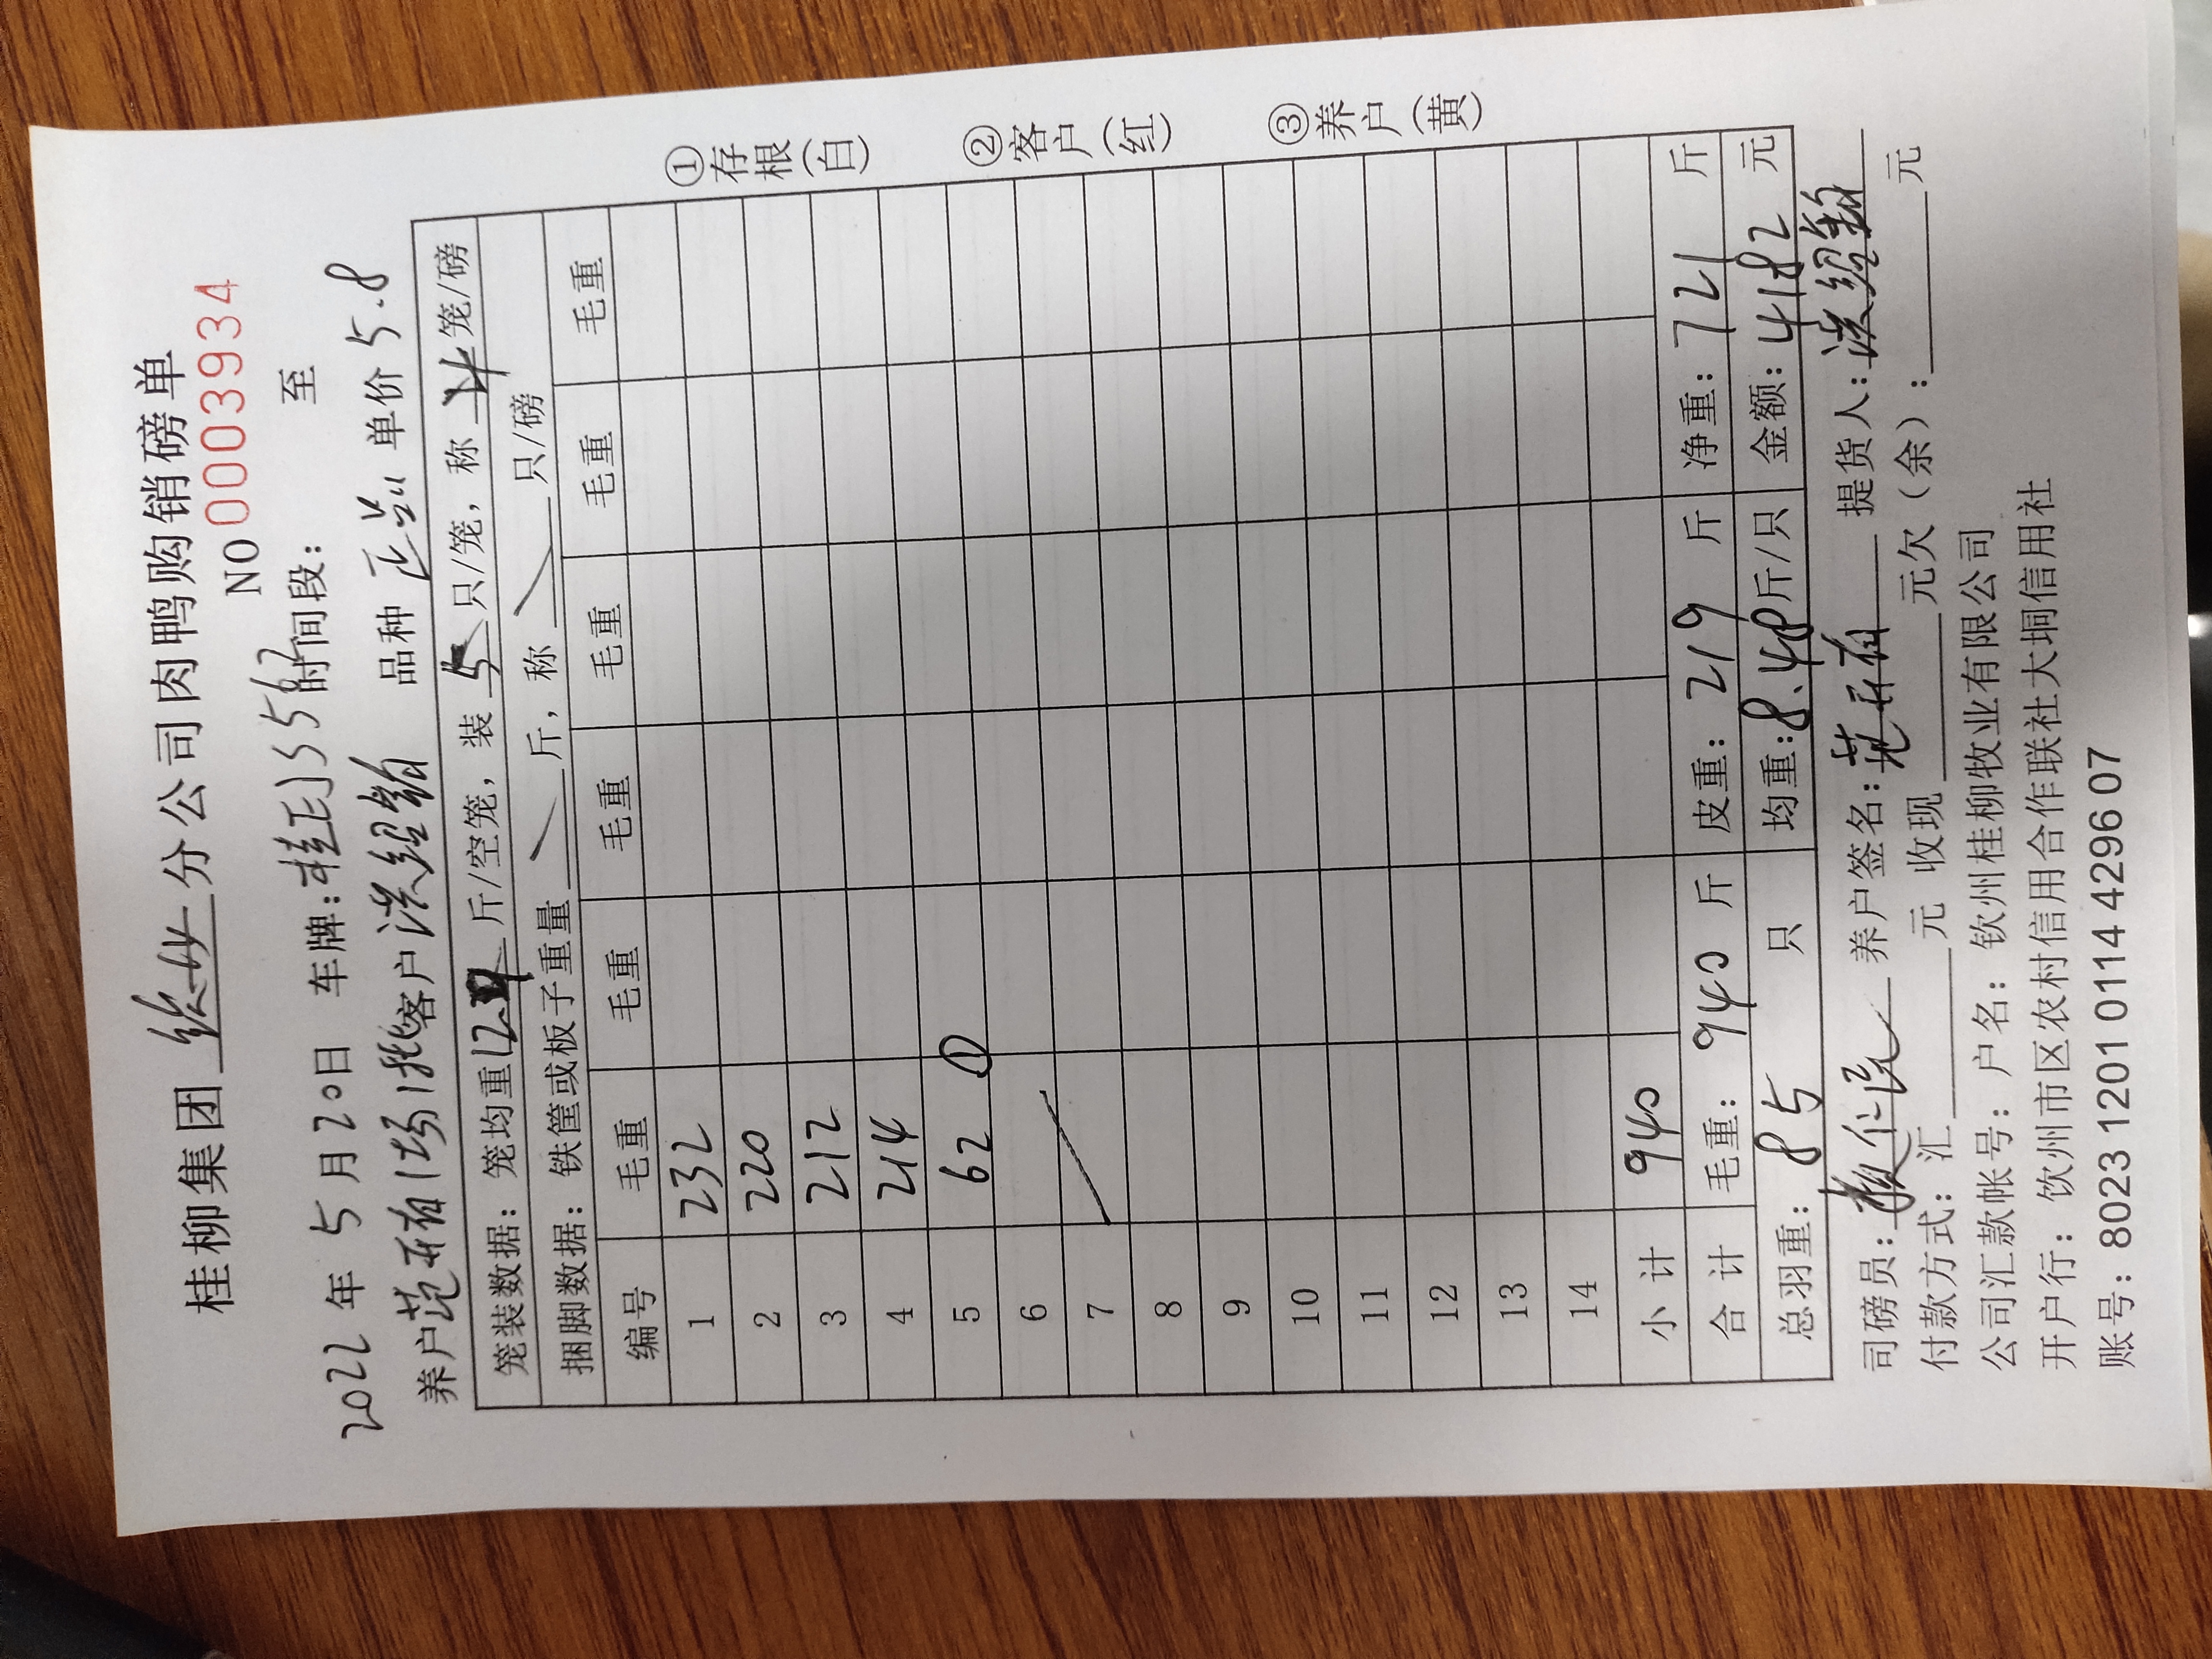 桂柳集团 分公司肉鸭购销磅单
NO 0003934
2022 年 5 月 20 日 车牌: 时间段: 至
养户 范 有 场 客户 洪绍 品种 正 单价 5.8
笼装数据: 笼均重 12 斤/空笼, 装 5 只/笼, 称 4 笼/磅
捆脚数据: 铁筐或板子重量 / 斤, 称 / 只/磅
编号 毛重 毛重 毛重 毛重 毛重 毛重
1 232
2 220
3 212
4 214
5 62 ①
6
7
8
9
10
11
12
13
14
小 计 940
合 计 毛重: 940 斤 皮重: 219 斤 净重: 721 斤
总羽重: 85 只 均重: 8.48 斤/只 金额: 4182 元
司磅员: 养户签名: 范 有 提货人: 洪绍
付款方式: 汇 元 收现 元欠(余): 元
公司汇款帐号: 户名: 钦州桂柳牧业有限公司
开户行: 饮州市区农村信用合作联社大垌信用社
账号: 8023 1201 0114 4296 07
①存根(白) ②客户(红) ③养户(黄)